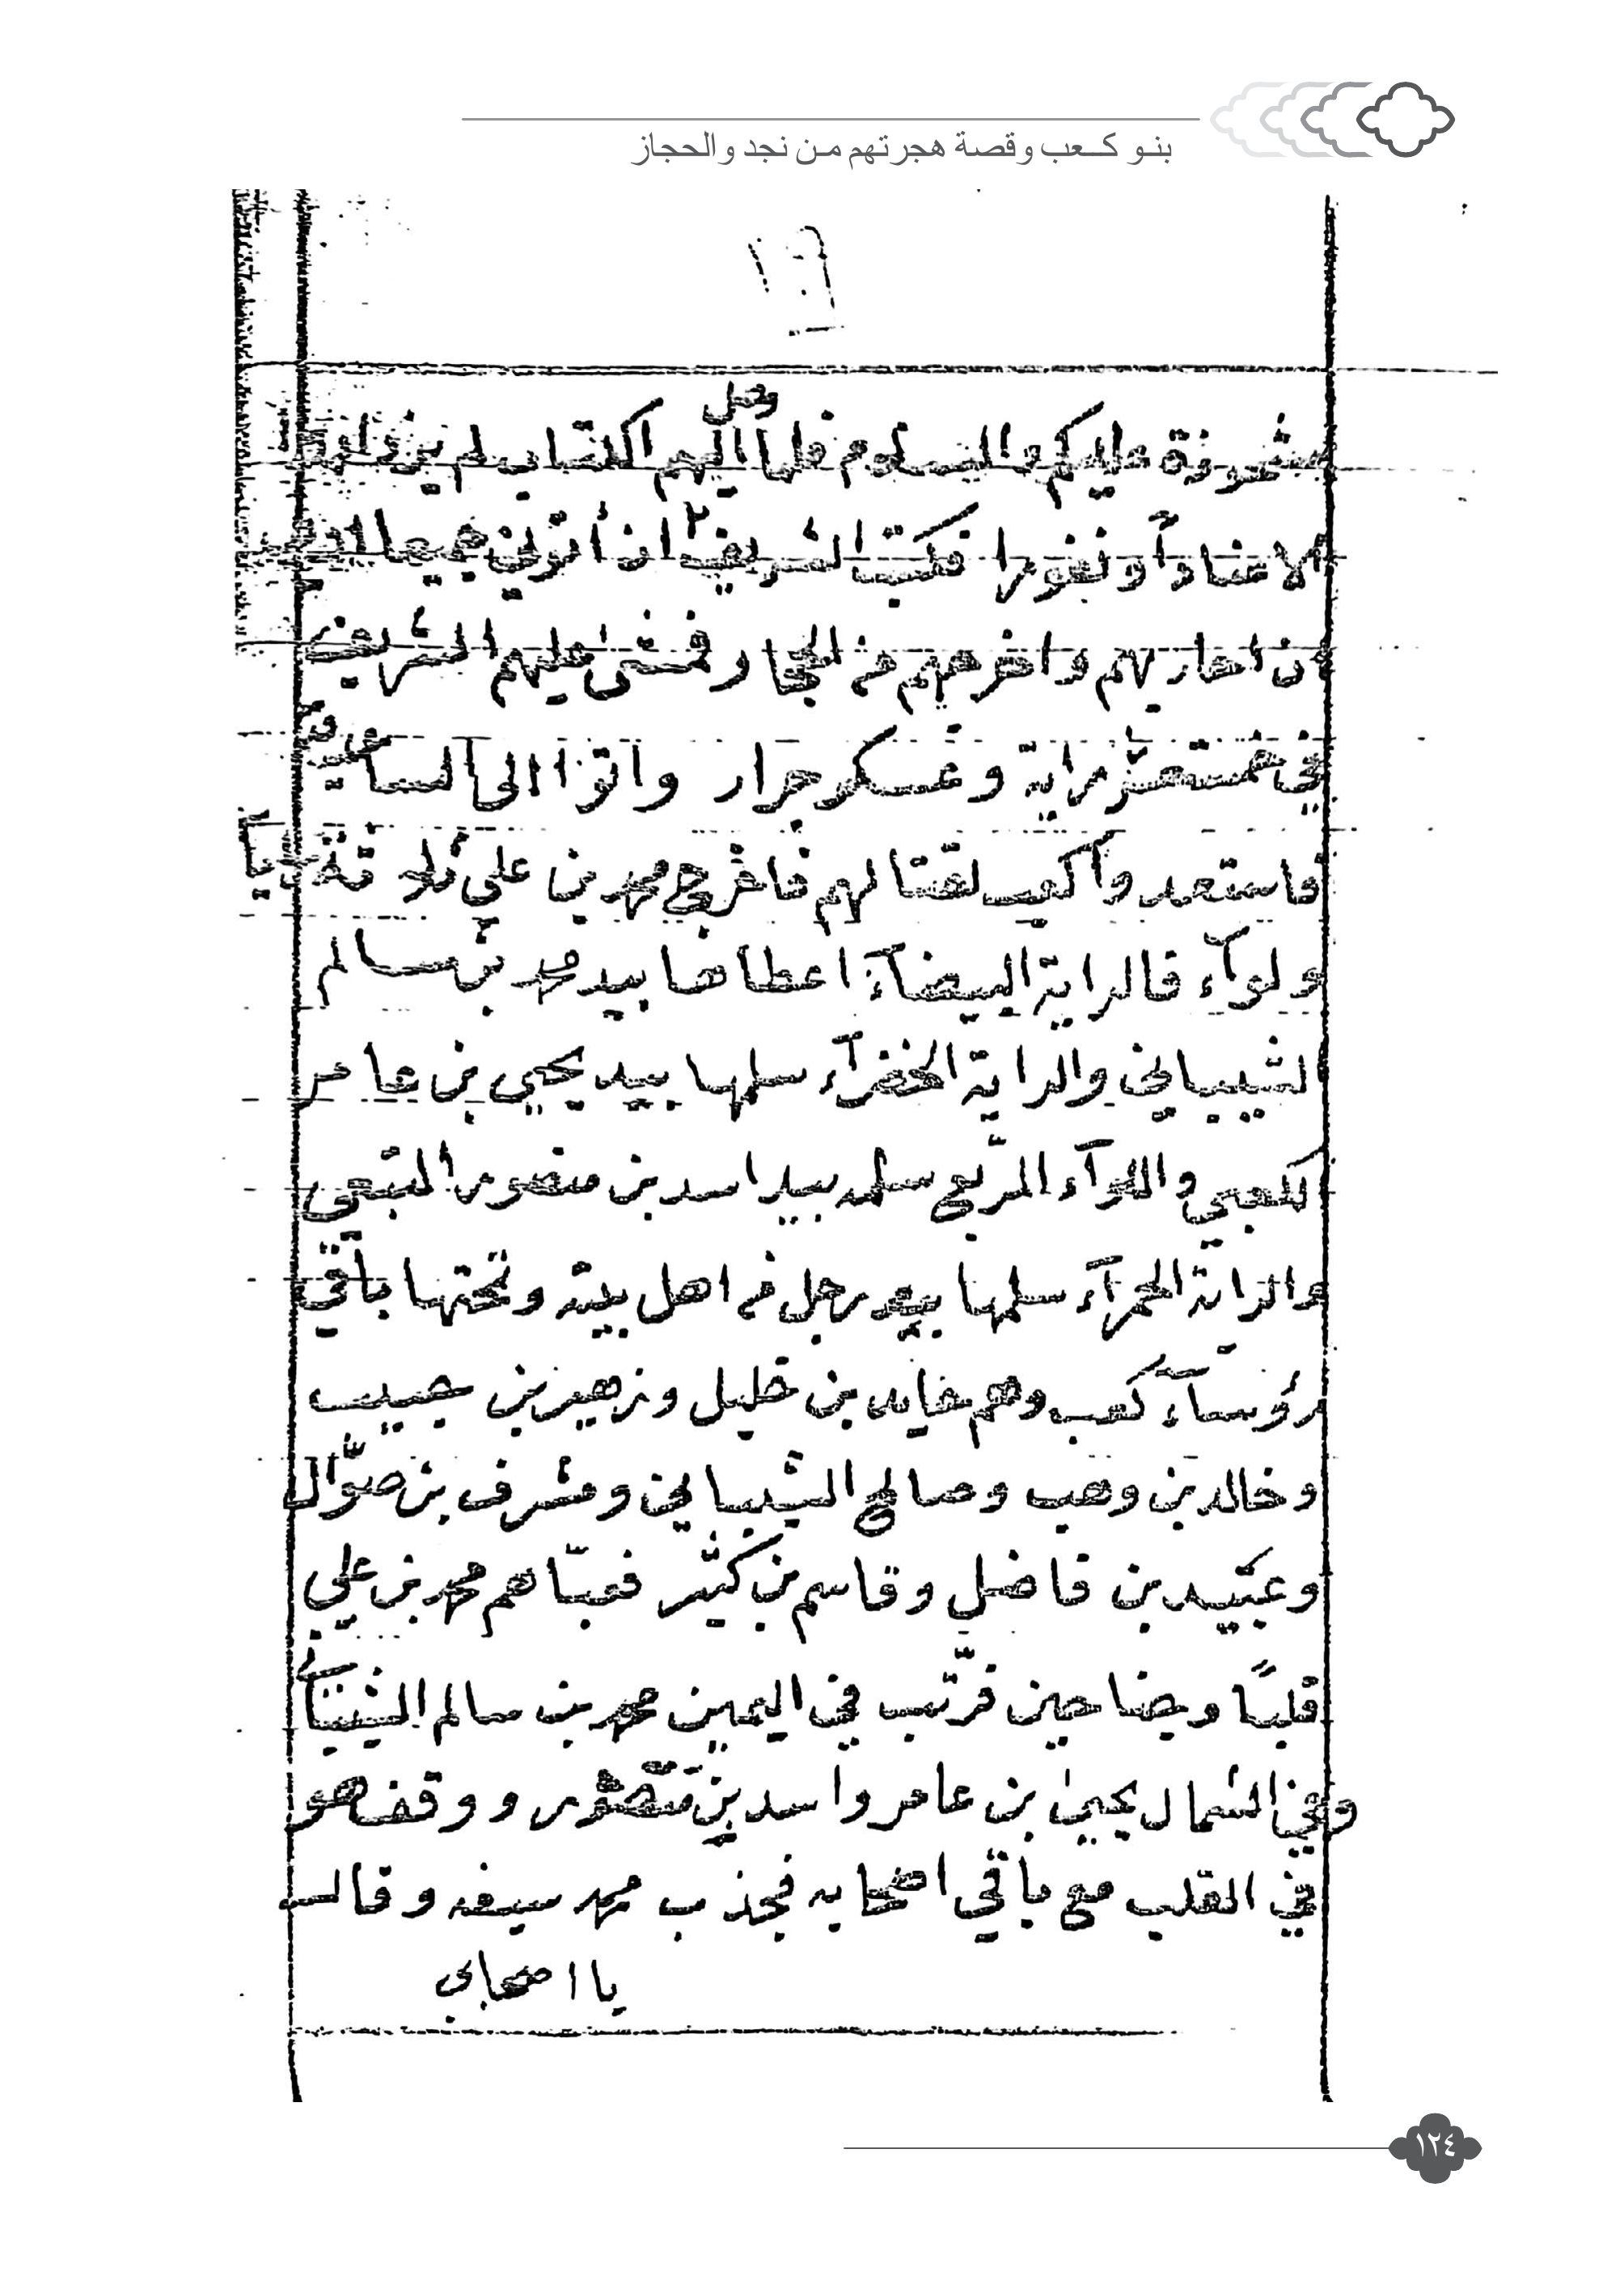 بنو كعب وقصة هجرتهم من نجد والحجاز
مشحونة عليكم والسلام فلما وصل اليهم الكتاب لم يزدادوا
الا عناداً ونفورا فكتب الشريف ان أتوني جميعا
ان احاربهم واخرجهم من الحجاز فمشى عليهم الشريف
في خمستعشر راية وعسكر جرار واتوا الى الساعدية
فاستعدوا كعب لقتالهم فاخرج محمد بن علي ثلاثة
ولوآء فالراية البيضآء اعطاها بيد محمد بن سالم
الشيباني والراية الخضرآء سلمها بيد يحيى بن عامر
الكعبي واللوآء المربع سلمه بيد اسد بن منصور
والراية الحمرآء سلمها بيد رجل من اهل بيته وتحتها باقي
رؤسآء كعب وهم خالد بن خليل وزهير بن حبيب
وخالد بن وهب وصالح الشيباني ومشرف بن صوّال
وعبيد بن فاضل وقاسم بن كثير فعبّاهم محمد بن علي
قلباً وجناحين فرتّب في اليمين محمد بن سالم الشيباني
وفي الشمال يحيى بن عامر واسد بن منصور ووقف هو
في القلب مع باقي اصحابه فجذب محمد سيفه وقال
يا اصحابي
١٢٤